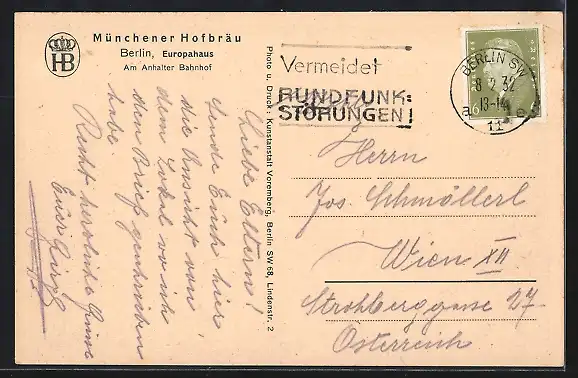 HB
Münchener Hofbräu
Berlin, Europahaus
Am Anhalter Bahnhof
Liebe Eltern!
Sende Euch hier
die Ansicht von
dem Lokal wo ich
den Brief geschrieben
habe
Recht herzliche Grüsse
Euer
Photo u. Druck: Kunstanstalt Voremberg, Berlin SW 68, Lindenstr. 2
Vermeidet
RUNDFUNK:
STÖRUNGEN!
BERLIN SW
8 2 32
13-14
a e
11
Herrn
Jos. Schmöllerl
Wien XII
Strohberggasse 27
Österreich